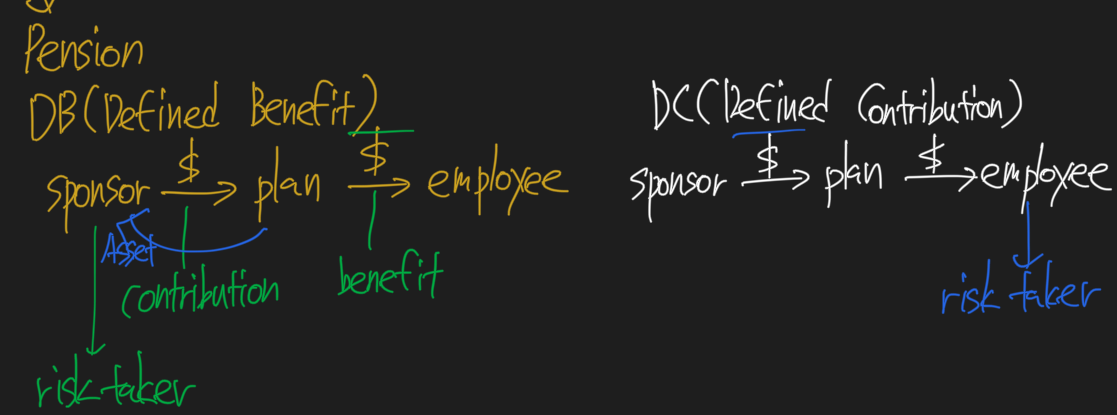 Pension
DB (Defined Benefit)
$ $
sponsor → plan → employee
Asset
Contribution
benefit
risk taker
DC (Defined Contribution)
$ $
sponsor → plan → employee
risk taker